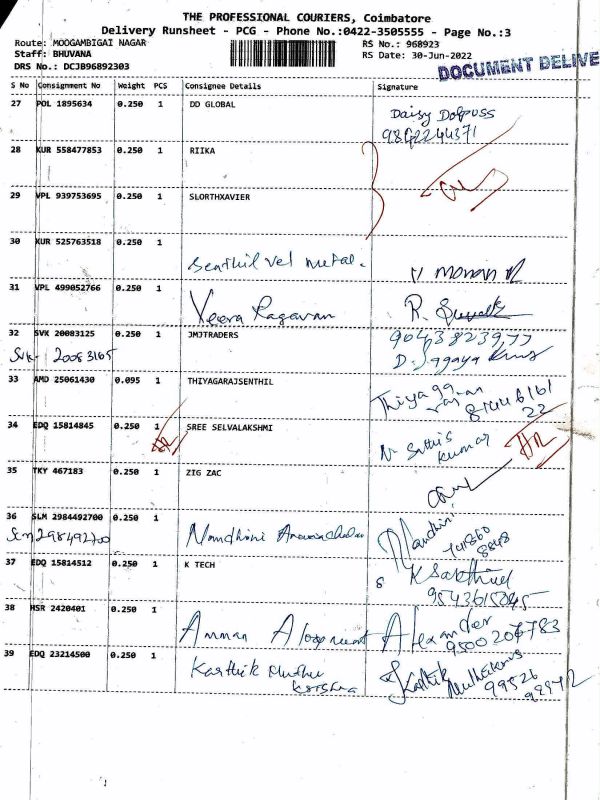 THE PROFESSIONAL COURIERS, Coimbatore
Delivery Runsheet - PCG - Phone No.:0422-3505555 - Page No.:3
Route: MOOGAMBIGAI NAGAR RS No.: 968923
Staff: BHUVANA RS Date: 30-Jun-2022
DRS No.: DCJB96892303 DOCUMENT DELIVE
S No Consignment No Weight PCS Consignee Details Signature
27 POL 1895634 0.250 1 DD GLOBAL Daisy
9842244371
28 KUR 558477853 0.250 1 RIIKA
29 VPL 939753695 0.250 1 SLORTHXAVIER
30 KUR 525763518 0.250 1
Senthil Vel metal.
31 VPL 499052766 0.250 1 Veera Ragavan R.
32 SVK 20083125 0.250 1 JMJTRADERS
SVK 20083165 D.
33 AMD 25061430 0.095 1 THIYAGARAJSENTHIL
Thiyaga
rajan
22
34 EDQ 15814845 0.250 1 SREE SELVALAKSHMI
N Sathis
kumar
35 TKY 467183 0.250 1 ZIG ZAC
36 SLM 2984492700 0.250 1
Nandhini Nandhini
37 EDQ 15814512 0.250 1 K TECH K Sakthivel
38 HSR 2420401 0.250 1
Amman Alexander
39 EDQ 23214500 0.250 1
Karthik Muthu Karthik
krishna
99526